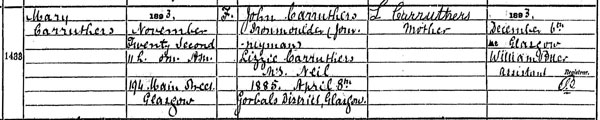 Mary
Carruthers
1433
1893.
November
Twenty Second
11h. 0m. A.M.
194 Main Street
Glasgow
F.
John Carruthers
Ironmoulder (Jour-
neyman)
Lizzie Carruthers
M.S. Neil
1885. April 8th
Gorbals District, Glasgow.
L Carruthers
Mother
1893.
December 6th
At Glasgow
William
Assistant Registrar.